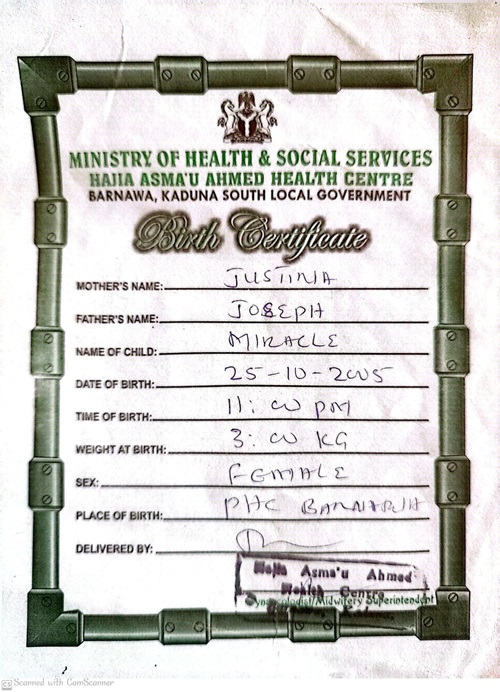 MINISTRY OF HEALTH & SOCIAL SERVICES
HAJIA ASMA'U AHMED HEALTH CENTRE
BARNAWA, KADUNA SOUTH LOCAL GOVERNMENT
Birth Certificate
MOTHER'S NAME: JUSTINA
FATHER'S NAME: JOSEPH
NAME OF CHILD: MIRACLE
DATE OF BIRTH: 25-10-2005
TIME OF BIRTH: 11:00 PM
WEIGHT AT BIRTH: 3:00 KG
SEX: FEMALE
PLACE OF BIRTH: PHC BARNAWA
DELIVERED BY:
Hajia Asma'u Ahmed
Health Centre
Gynaecologist/Midwifery Superintendent
CS Scanned with CamScanner